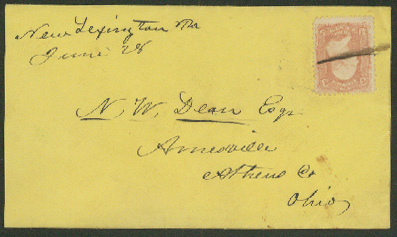 New Lexington Pa
June 28
N. W. Dean Esqr
Amesville
Athens Co
Ohio